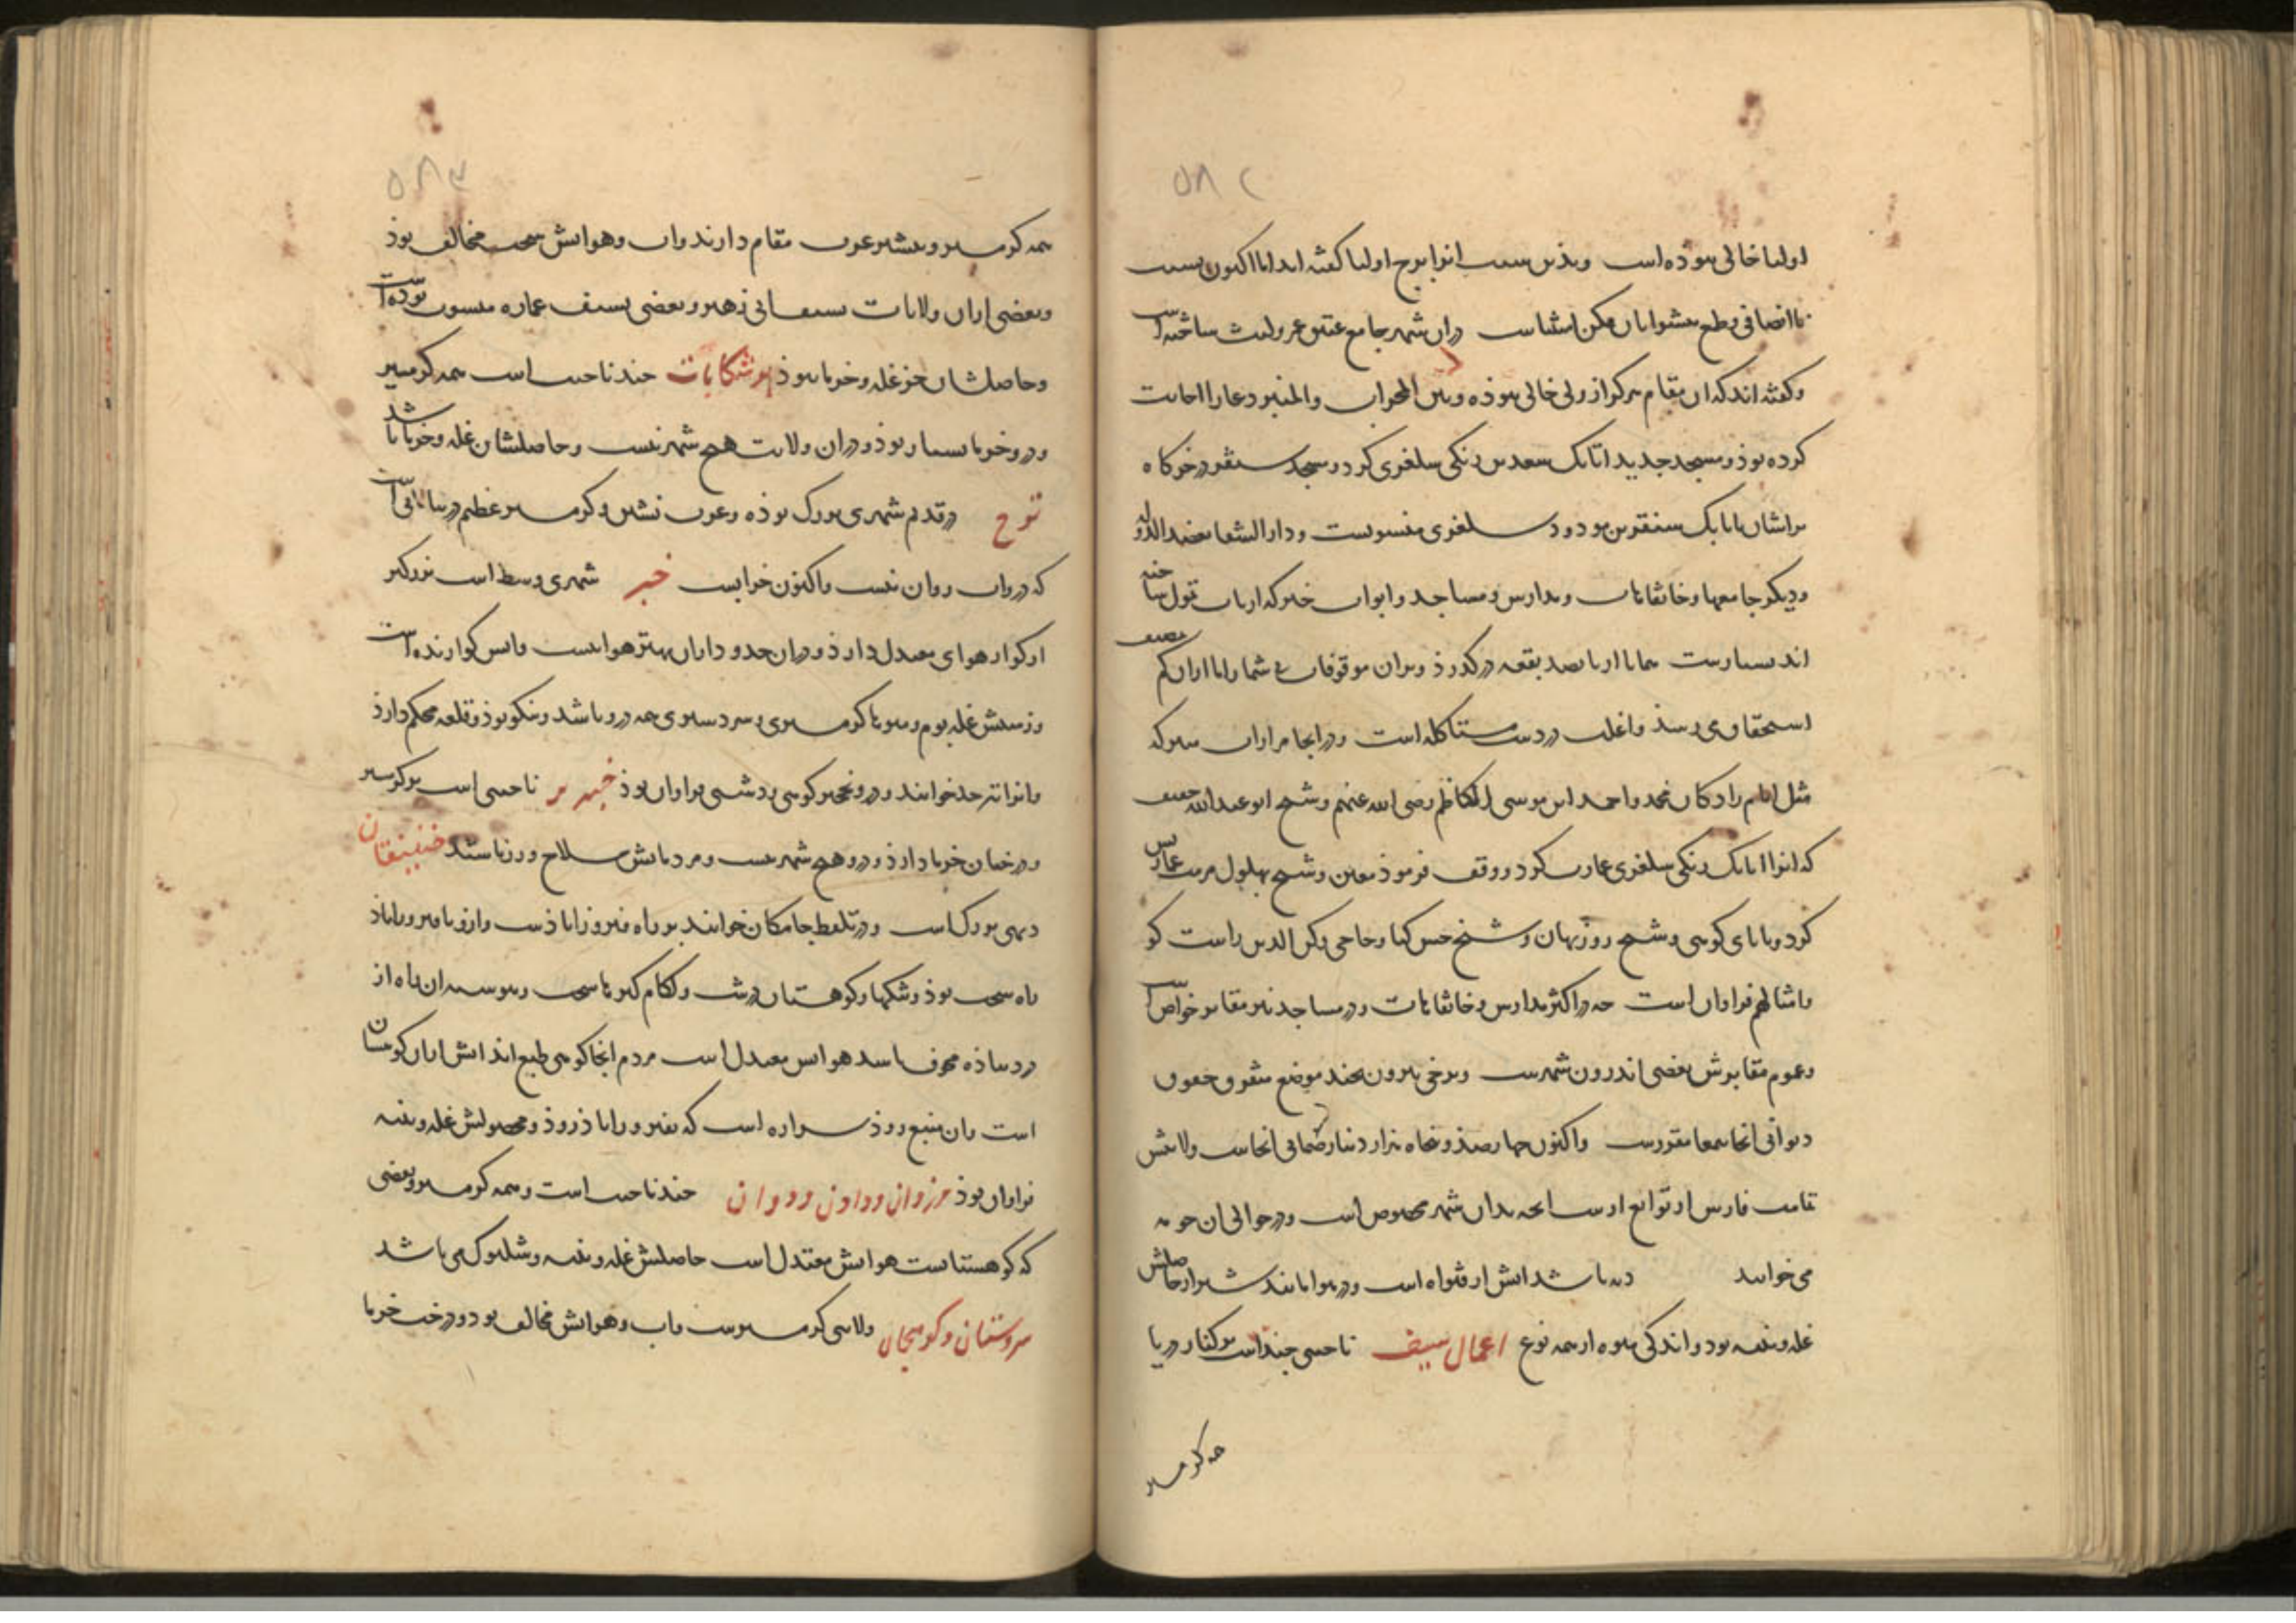 ۵۸۲
اولیا خالی نبوده است و بدین سبب انرا برج اولیا گفته اند اما اکنون بسبب
نا انصافی و طمع پیشوایان مکمن اشقیاست دران شهر جامع عتیق عمرو لیث ساخته است
و گفته اند که ان مقام هرگز از ولی خالی نبوذه و بین المحراب والمنبر دعا را اجابت
کرده بوذ و مسجد جدید اتابک سعد بن زنگی سلغری کرد و مسجد سنقر در خرکاه
تراشان باتابک سنقر بن مودود سلغری منسوبست و دار الشفا بعضد الدوله
و دیگر جامعها و خانقاهات و مدارس و مساجد و ابواب خیر که ارباب تمول ساخته
اند بسیارست همانا از پانصد بقعه درگذرذ و بران موقوفات بی شمار اما ازان کم بمصب
استحقاق می رسذ و اغلب در دست مستاکله است و در انجا مزارات متبرکه
مثل امام زادگان محمد و احمد ابن موسی الکاظم رضی الله عنهم و شیخ ابو عبد الله خفیف
که انرا اتابک زنگی سلغری عمارت کرد و وقف فرموذ معین و شیخ بهلول مرمت عمارتش
کرد و بابای کوهی و شیخ روزبهان و شیخ حسن کیا و حاجی رکن الدین راست گو
و امثالهم فراوان است چه در اکثر مدارس و خانقاهات و در مساجد نیز مقابر خواص است
و عموم مقابرش بعضی اندرون شهرست و برخی بیرون بچند موضع متفرق حقوق
دیوانی انجا بتمغا مقررست و اکنون چهارصذ و پنجاه هزار دینار ضمانی انجاست ولایتش
تمامت فارس از توابع
می خوانند دیه باشد ابش از قنواة است و در هوا مانند شیراز حاصلش
غله و پنبه بود و اندکی میوه از همه نوع اعمال سیف ناحیتی چند است بر کنار دریا
همه گرمسیر
۵۸۳
همه گرمسیر و بیشتر عرب مقام دارند و اب و هوایش سخت مخالف بوذ
و بعضی ازان ولایات بسیف ابی زهیر و بعضی بسیف عماره منسوب بوده است
و حاصلشان جز غله و خرما نبوذ بوشکانات چند ناحیت است همه گرمسیر
و درو خرما بسیار بوذ و دران ولایت هیچ شهر نیست و حاصلشان غله و خرما باشد
توج در قدیم شهری بزرگ بوذه و عرب نشین و گرمسیر عظیم در بیابانی است
که درو اب روان نیست و اکنون خرابست خبر شهری وسط است بزرگتر
از کوار هوای معتدل دارذ و دران حدود ازان بهتر هوا نیست و ابش گوارنده است
و زمینش غله بوم و میوها گرمسیری و سردسیری همه درو باشد و نیکو بوذ و قلعه محکم دارذ
و انرا تیر خدا خوانند و درو نخجیر کوهی و دشتی فراوان بوذ خبرین ناحیتی است بر گرمسیر
و درختان خرما دارذ و درو هیچ شهر نیست و مردمانش سلاح ورز باشند خنیفقان
دیهی بزرگ است و در تلفظ خنافکان خوانند بر راه فیروزاباذست و ازو تا فیروزاباذ
راه سخت بوذ و تنگها و کوهستان درشت و لگام گیرها سخت و پیوسته ان راه از
دزد پیاذه مخوف باشد هوایش معتدل است مردم انجا کوهی طبع اند ابش ازان کوهستان
است و ان منبع روذ برازه است که بفیروزاباذ روذ و محصولش غله و پنبه
فراوان بوذ مرزوان و داذین و دوان چند ناحیت است و همه گرمسیر و بعضی
که کوهستانست هوایش معتدل است حاصلش غله و پنبه و شلتوک می باشد
سروستان و کوبنجان ولایتی گرمسیرست و اب و هوایش مخالف بود و درخت خرما